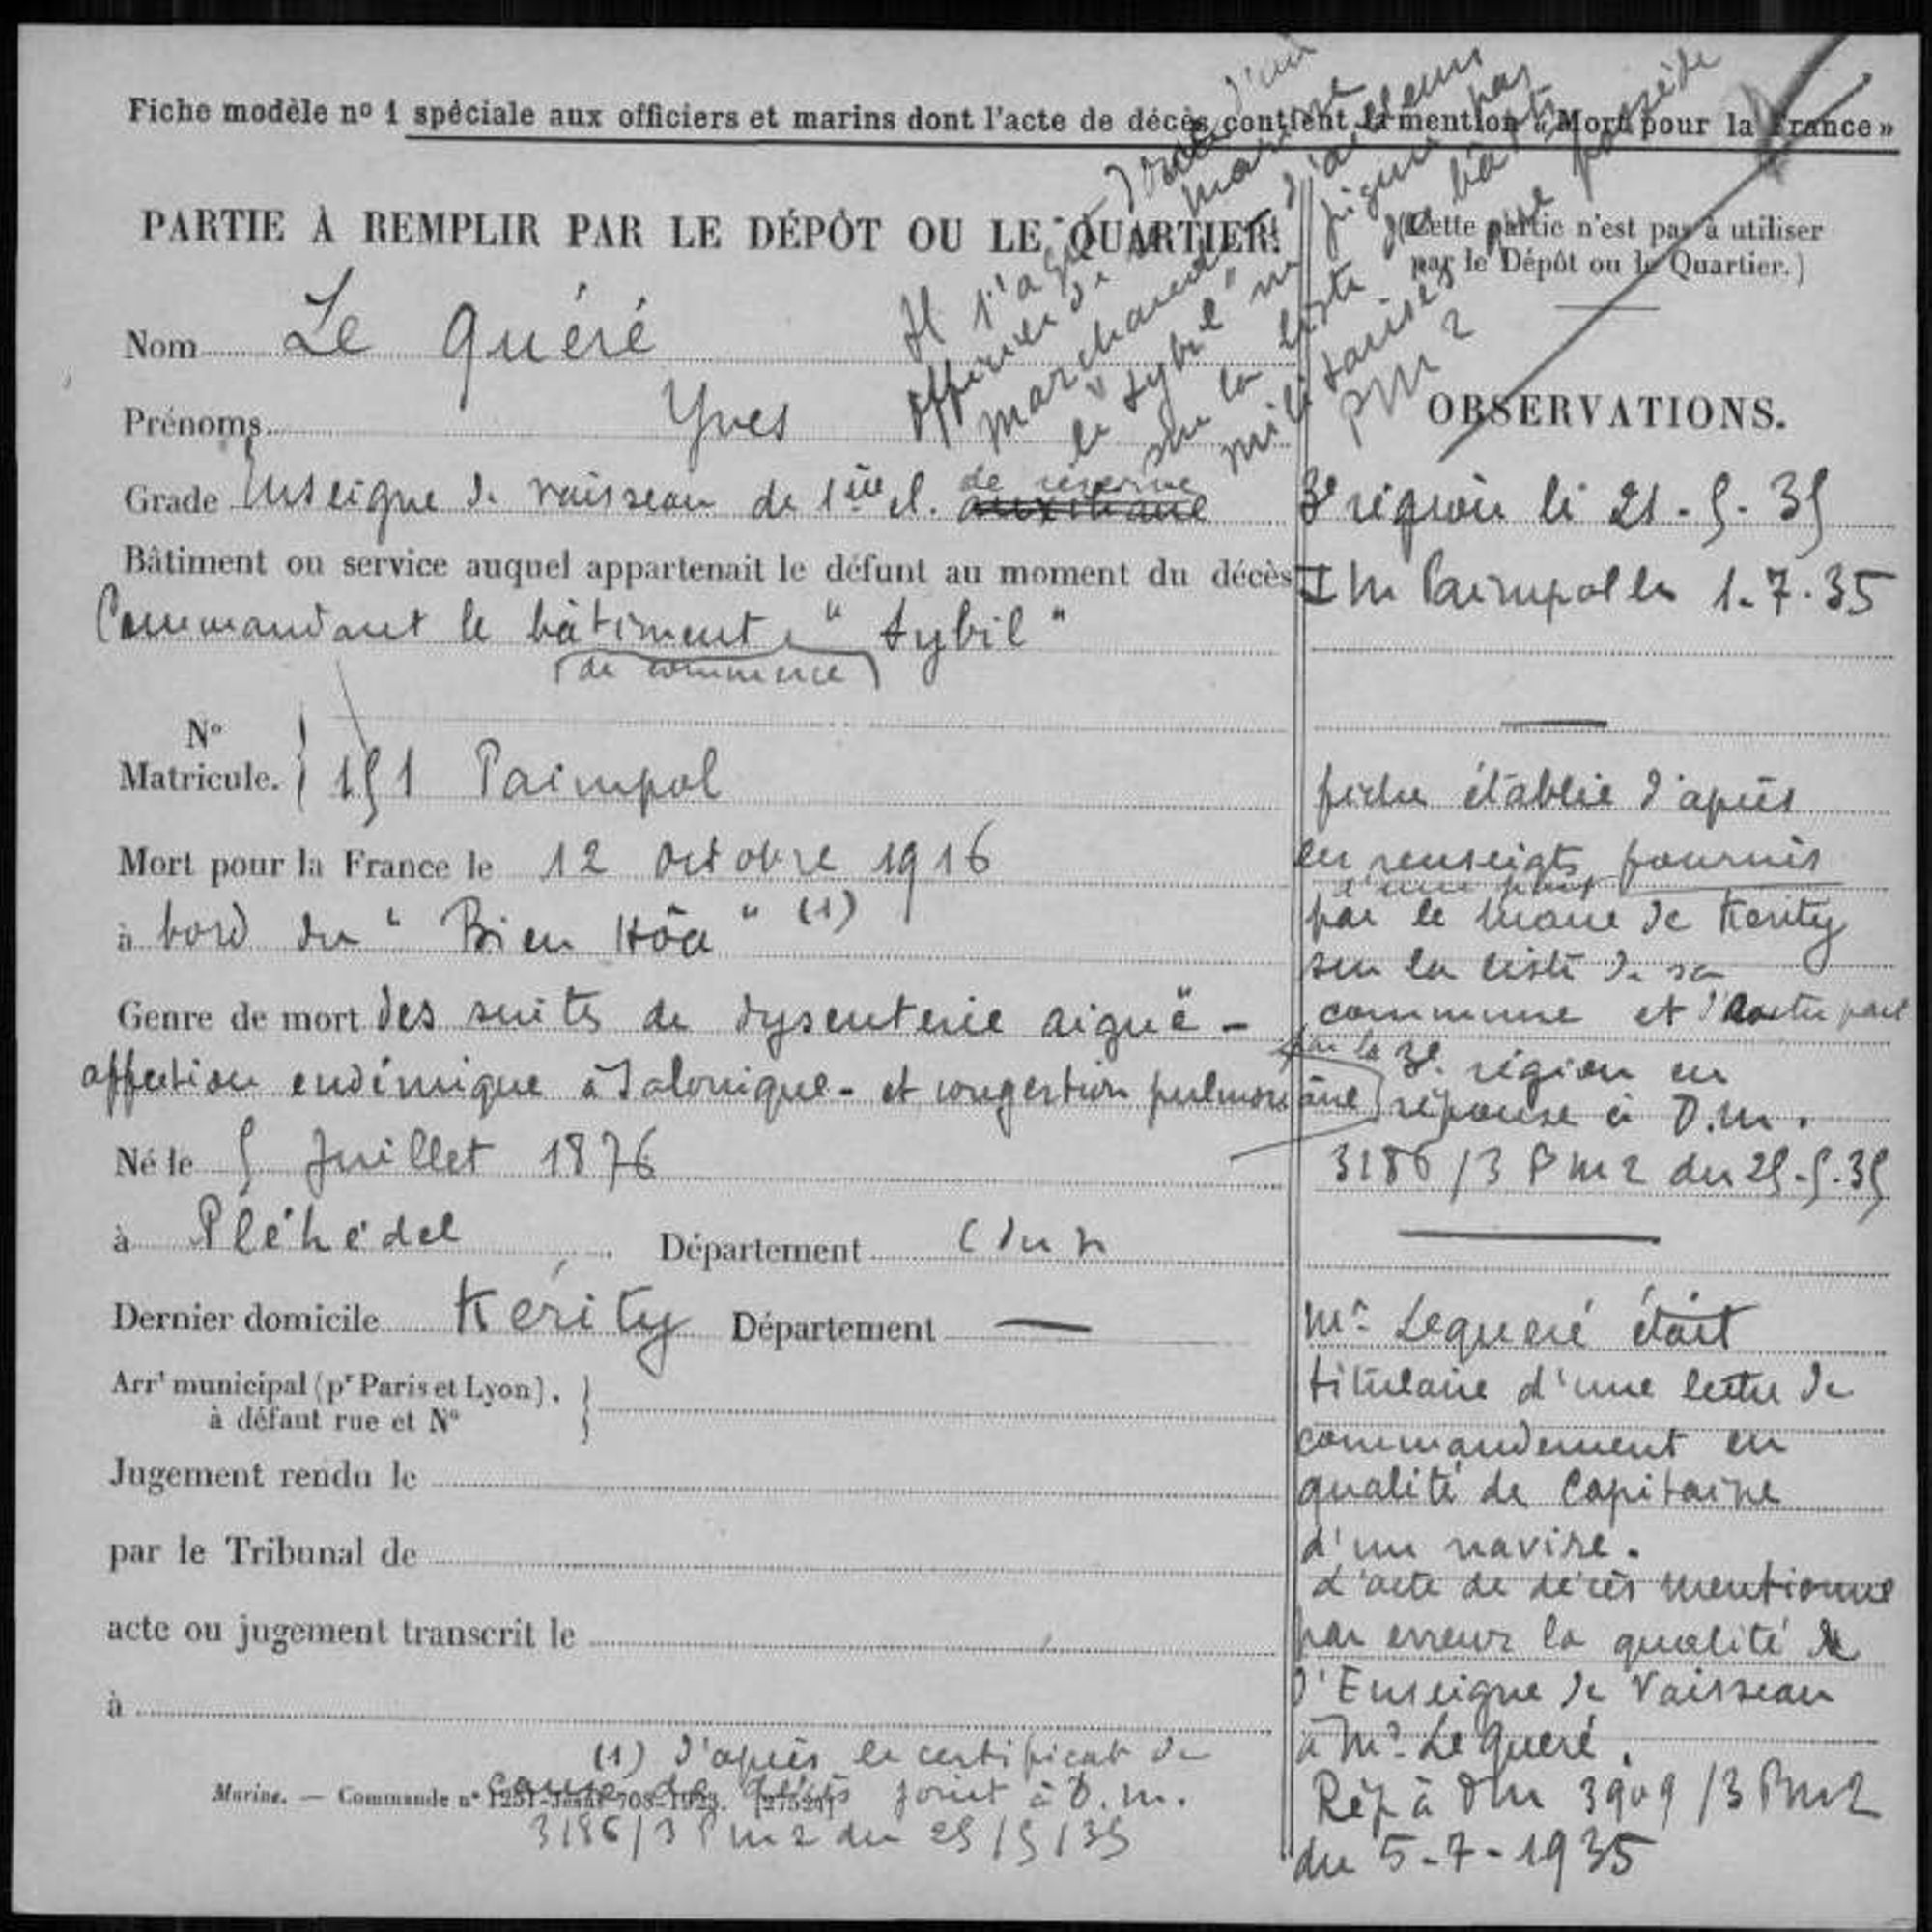 Fiche modèle nº 1 spéciale aux officiers et marins dont l'acte de décès contient la mention « Mort pour la France »
PARTIE À REMPLIR PAR LE DÉPÔT OU LE QUARTIER.
Il s'agit d'un
officier de la marine
marchande d'ailleurs
le "Sybil" ne figure pas
sur la liste des bâts
militarisés que possède
PM2
(Cette partie n'est pas à utiliser
par le Dépôt ou le Quartier.)
Nom Le Quéré
Prénoms Yves
Grade Enseigne de vaisseau de 1ère cl. auxiliaire de réserve
Bâtiment ou service auquel appartenait le défunt au moment du décès
Commandant le bâtiment "Sybil"
(de commerce)
Nº
Matricule. } 151 Paimpol
Mort pour la France le 12 octobre 1916
à bord du "Bien Hôa" (1)
Genre de mort des suites de dysenterie aiguë -
affection endémique à Salonique - et congestion pulmonaire
Né le 5 Juillet 1876
à Pléhédel Département C du N
Dernier domicile Kérity Département —
Arrt municipal (pr Paris et Lyon).
à défaut rue et Nº
Jugement rendu le
par le Tribunal de
acte ou jugement transcrit le
à
(1) d'après le certificat de
cause de décès joint à D.M.
3186/3 PM2 du 25/5/35
Marine. — Commande nº
OBSERVATIONS.
3e région le 21-5-35
IM Paimpol le 1-7-35
fiche établie d'après
les renseigts fournis
d'une part
par le Maire de Kérity
sur la liste de sa
commune et d'autre part
par la 3e région en
réponse à D.M.
3186/3 PM2 du 25-5-35
Mr Lequéré était
titulaire d'une lettre de
commandement en
qualité de Capitaine
d'un navire.
L'acte de décès mentionne
par erreur la qualité
d'Enseigne de Vaisseau
à Mr Le Quéré.
Rép à DM 3909/3 PM2
du 5-7-1935